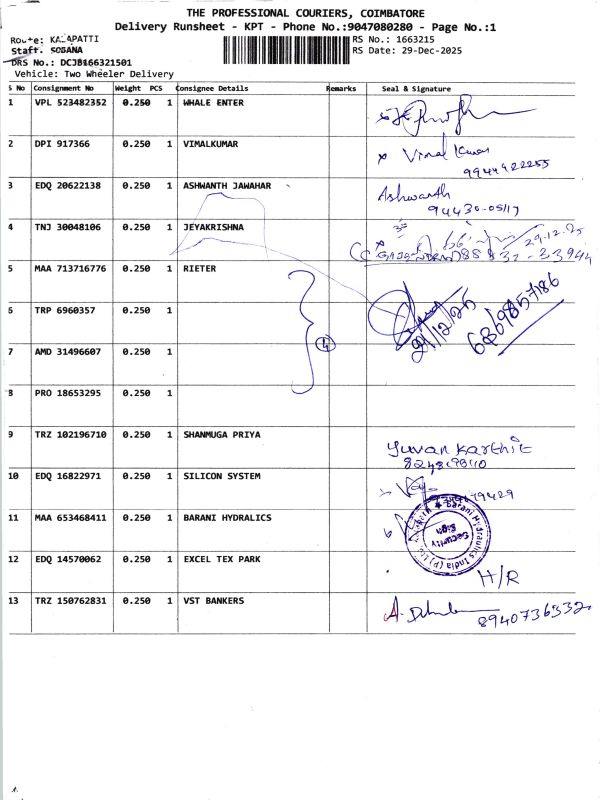 THE PROFESSIONAL COURIERS, COIMBATORE
Delivery Runsheet - KPT - Phone No.:9047080280 - Page No.:1
Route: KALAPATTI
RS No.: 1663215
Staff: SOBANA
RS Date: 29-Dec-2025
DRS No.: DCJB166321501
Vehicle: Two Wheeler Delivery
S No Consignment No Weight PCS Consignee Details Remarks Seal & Signature
1 VPL 523482352 0.250 1 WHALE ENTER
2 DPI 917366 0.250 1 VIMALKUMAR Vimal Kumar
9944922255
3 EDQ 20622138 0.250 1 ASHWANTH JAWAHAR Ashwanth
94430-05117
4 TNJ 30048106 0.250 1 JEYAKRISHNA 29.12.25
5 MAA 713716776 0.250 1 RIETER
6 TRP 6960357 0.250 1
4
7 AMD 31496607 0.250 1
8 PRO 18653295 0.250 1
9 TRZ 102196710 0.250 1 SHANMUGA PRIYA Yuvan Karthic
10 EDQ 16822971 0.250 1 SILICON SYSTEM
11 MAA 653468411 0.250 1 BARANI HYDRALICS
Barani Hydraulics India (P) Ltd
Security
Sign
12 EDQ 14570062 0.250 1 EXCEL TEX PARK
H/R
13 TRZ 150762831 0.250 1 VST BANKERS
8940736332